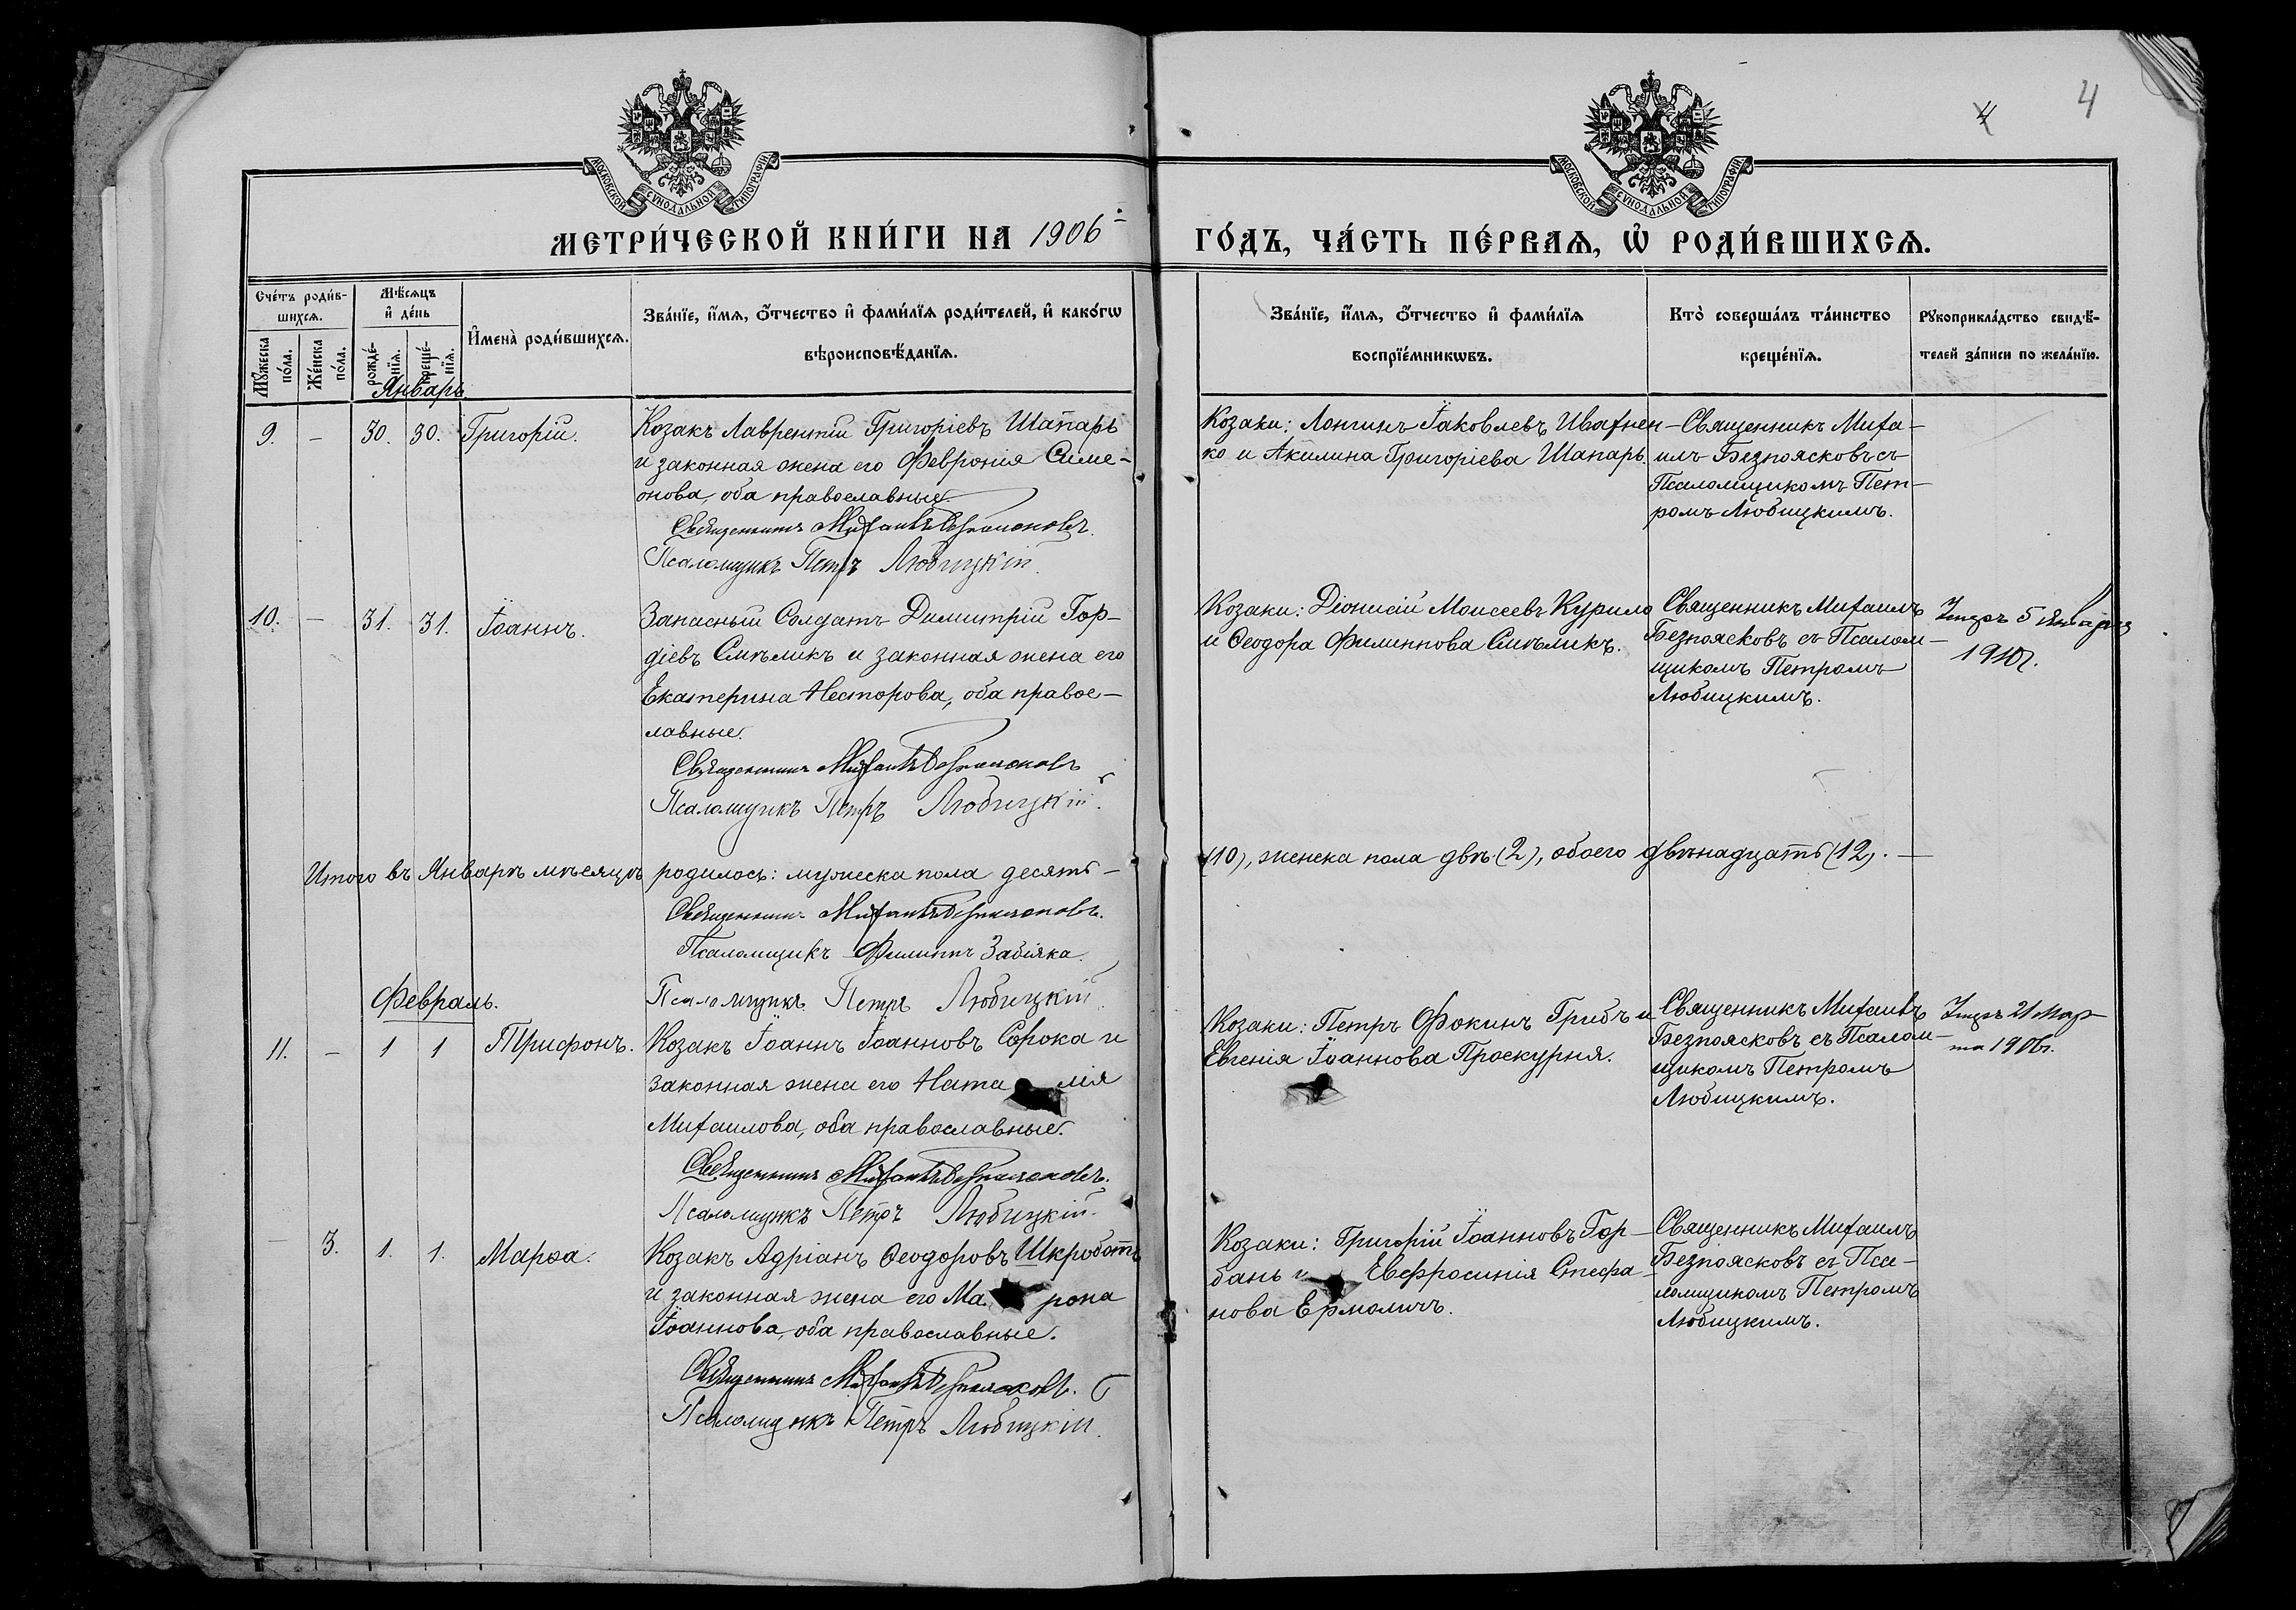 4 4
МОСКОВСКОЙ СѴНОДАЛЬНОЙ ТИПОГРАФІИ
МОСКОВСКОЙ СѴНОДАЛЬНОЙ ТИПОГРАФІИ
МЕТРИ́ЧЕСКОЙ КНИ́ГИ НА 1906 й
ГО́ДЪ, ЧА́СТЬ ПЕ́РВАѦ, Ѡ҆ РОДИ́ВШИХСѦ.
Сче́тъ роди́в-
шихсѧ.
Мꙋ́жеска по́ла.
Же́нска по́ла.
Мѣ́сѧцъ
и҆ де́нь
рожде́-
нїѧ.
креще́-
нїѧ.
И҆мена̀ роди́вшихсѧ.
Зва́нїе, и҆́мѧ, ѻ҆́тчество и҆ фами́лїѧ роди́телей, и҆ како́гѡ
вѣроисповѣ́данїѧ.
Зва́нїе, и҆́мѧ, ѻ҆́тчество и҆ фами́лїѧ
воспрїе́мникѡвъ.
Кто̀ соверша́лъ та́инство
креще́нїѧ.
Рꙋкоприкла́дство свидѣ́-
телей за́писи по жела́нїю.
Январь
9. – 30. 30. Григорій.
Козакъ Лаврентій Григоріевъ Шапарь
и законная жена его Феврония Симе-
онова, оба православные.
Священникъ Михаилъ Безпоясковъ.
Псаломщикъ Петръ Любицкій.
Козаки: Лонгинъ Іаковлевъ Ивахнен-
ко и Акилина Григоріева Шапарь.
Священникъ Миха-
илъ Безпоясковъ съ
Псаломщикомъ Пет-
ромъ Любицкимъ.
10. – 31. 31. Іоаннъ.
Запасный Солдатъ Димитрій Гор-
діевъ Смѣликъ и законная жена его
Екатерина Несторова, оба правос-
лавные.
Священникъ Михаилъ Безпоясковъ
Псаломщикъ Петръ Любицкій.
Козаки: Діонисій Моисеевъ Курило
и Ѳеодора Филиппова Смѣликъ.
Священникъ Михаилъ
Безпоясковъ съ Псалом-
щикомъ Петромъ
Любицкимъ.
Умеръ 5 января
1910г.
Итого въ Январѣ мѣсяцѣ родилось: мужеска пола десять –
(10), женска пола двѣ (2), обоего двѣнадцать (12). —
Священникъ Михаилъ Безпоясковъ.
Псаломщикъ Филиппъ Забіяка.
Псаломщикъ Петръ Любицкій.
Февраль.
11. – 1 1 Трифонъ.
Козакъ Іоаннъ Іоанновъ Сорока и
законная жена его Ната лія
Михаилова, оба православные.
Священникъ Михаилъ Безпоясковъ.
Псаломщикъ Петръ Любицкій.
Козаки: Петръ Фокинъ Грибъ и
Евгенія Іоаннова Проскурня.
Священникъ Михаилъ
Безпоясковъ съ Псалом-
щикомъ Петромъ
Любицкимъ.
Умеръ 21 Мар-
та 1906г.
– 3. 1. 1. Марѳа.
Козакъ Адріанъ Ѳеодоровъ Шкроботъ
и законная жена его Ма рона
Іоаннова, оба православные.
Священникъ Михаилъ Безпоясковъ.
Псаломщикъ Петръ Любицкій.
Козаки: Григорій Іоанновъ Гор-
бань и Евфросинія Стефа-
нова Ермоличъ.
Священникъ Михаилъ
Безпоясковъ съ Пса-
ломщикомъ Петромъ
Любицкимъ.